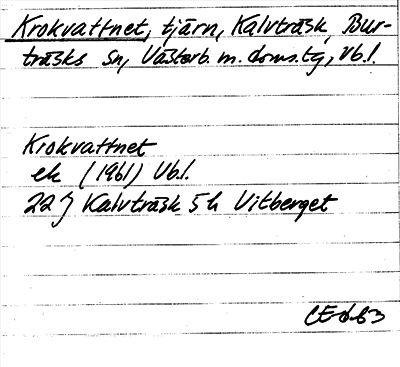 Krokvattnet, tjärn, Kalvträsk, Bur-
träsks sn, Västerb. m. doms.tg, Vb.l.
Krokvattnet
ek (1961) Vb.l.
22 J Kalvträsk 5 h Vitberget